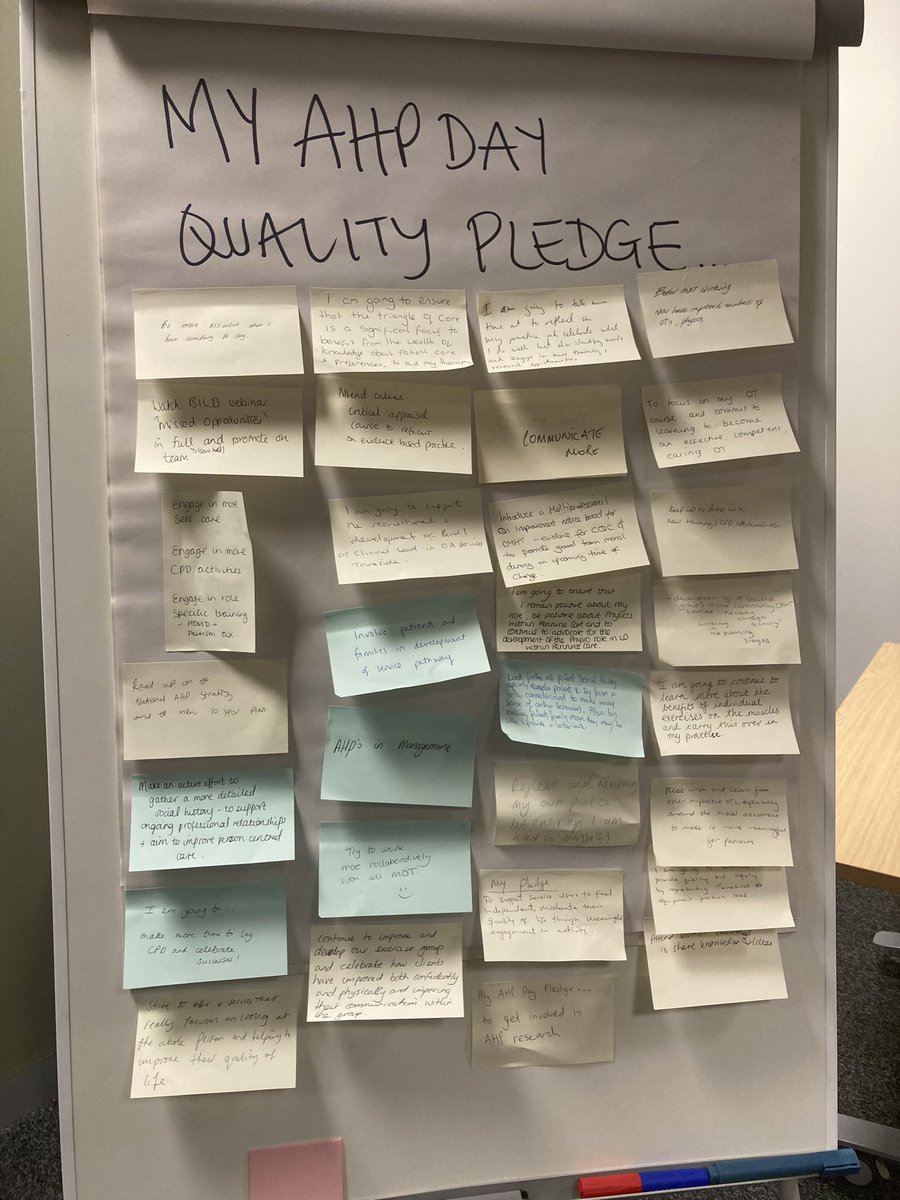 MY AHP DAY
QUALITY PLEDGE...
Be more assertive when I
have something to say.
I am going to ensure
that the triangle of Care
is a significant focus to
benefit from the wealth of
knowledge about patient care
& preferences, to aid my therapy
I am going to take more
time out to reflect on
my practice and celebrate what
I do well but also identify needs
and engage in more training &
research opportunities
Better MDT working
Now have improved numbers of
OTs, physios
Watch BILD webinar
"Missed Opportunities"
in full and promote on
team
Attend online
critical appraisal
course to refocus
on evidence based practice.
COMMUNICATE
MORE
To focus on my OT
course and commit to
learning to become
an effective, competent,
caring OT
Engage in more
Self care
Engage in more
CPD activities
Engage in role
Specific training
- ADHD +
Autism ax
I am going to support
the recruitment +
development of Band 7
OT Clinical Lead in OA services
Tameside.
Introduce a Multiprofessional
QI improvement notice board for
CMHT - evidence for CQC &
to promote good team moral
during an upcoming time of
change.
Keep up to date with
new training/CPD opportunities.
I am going to ensure that
I remain positive about my
role, be positive about Physio's
within Pennine Care and to
continue to advocate for the
development of the Physio role in LD
within Pennine Care.
- development of
groups in the community
Involve patients and
families in development
of service pathway
Read up on the
National AHP Strategy
and the new 10 year Plan
Look further into patients social history
especially dementia patients to try form a
better connection and to make more
sense of certain behaviours. Also by
involving patients family more they may be
able to provide a better
I am going to continue to
learn more about the
benefits of individual
exercises on the muscles
and carry this over in
my practice.
AHP's in Management
Make an active effort to
gather a more detailed
social history - to support
ongoing professional relationships
+ aim to improve person centred
care.
Reflect and reviewing
my own practice
but ensuring I am
kind to myself!
Meet with and learn from
other inpatient OTs, especially
around the initial assessment
to make it more meaningful
for patients
Try to work
more collaboratively
with all MDT
My Pledge
To support service users to feel
independent,
quality of life through meaningful
engagement in activity.
I am going to
provide quality and
by representing Tameside
equipment
I am going to...
make more time to log
CPD and celebrate
successes!
continue to improve and
develop our exercise group
and celebrate how clients
have improved both confidently
and physically and improving
their communication within
the group.
Attend
to share knowledge & ideas
Strive to offer a service that
really focuses on looking at
the whole person and helping to
improve their quality of
life.
My AHP Day Pledge...
to get involved in
AHP research